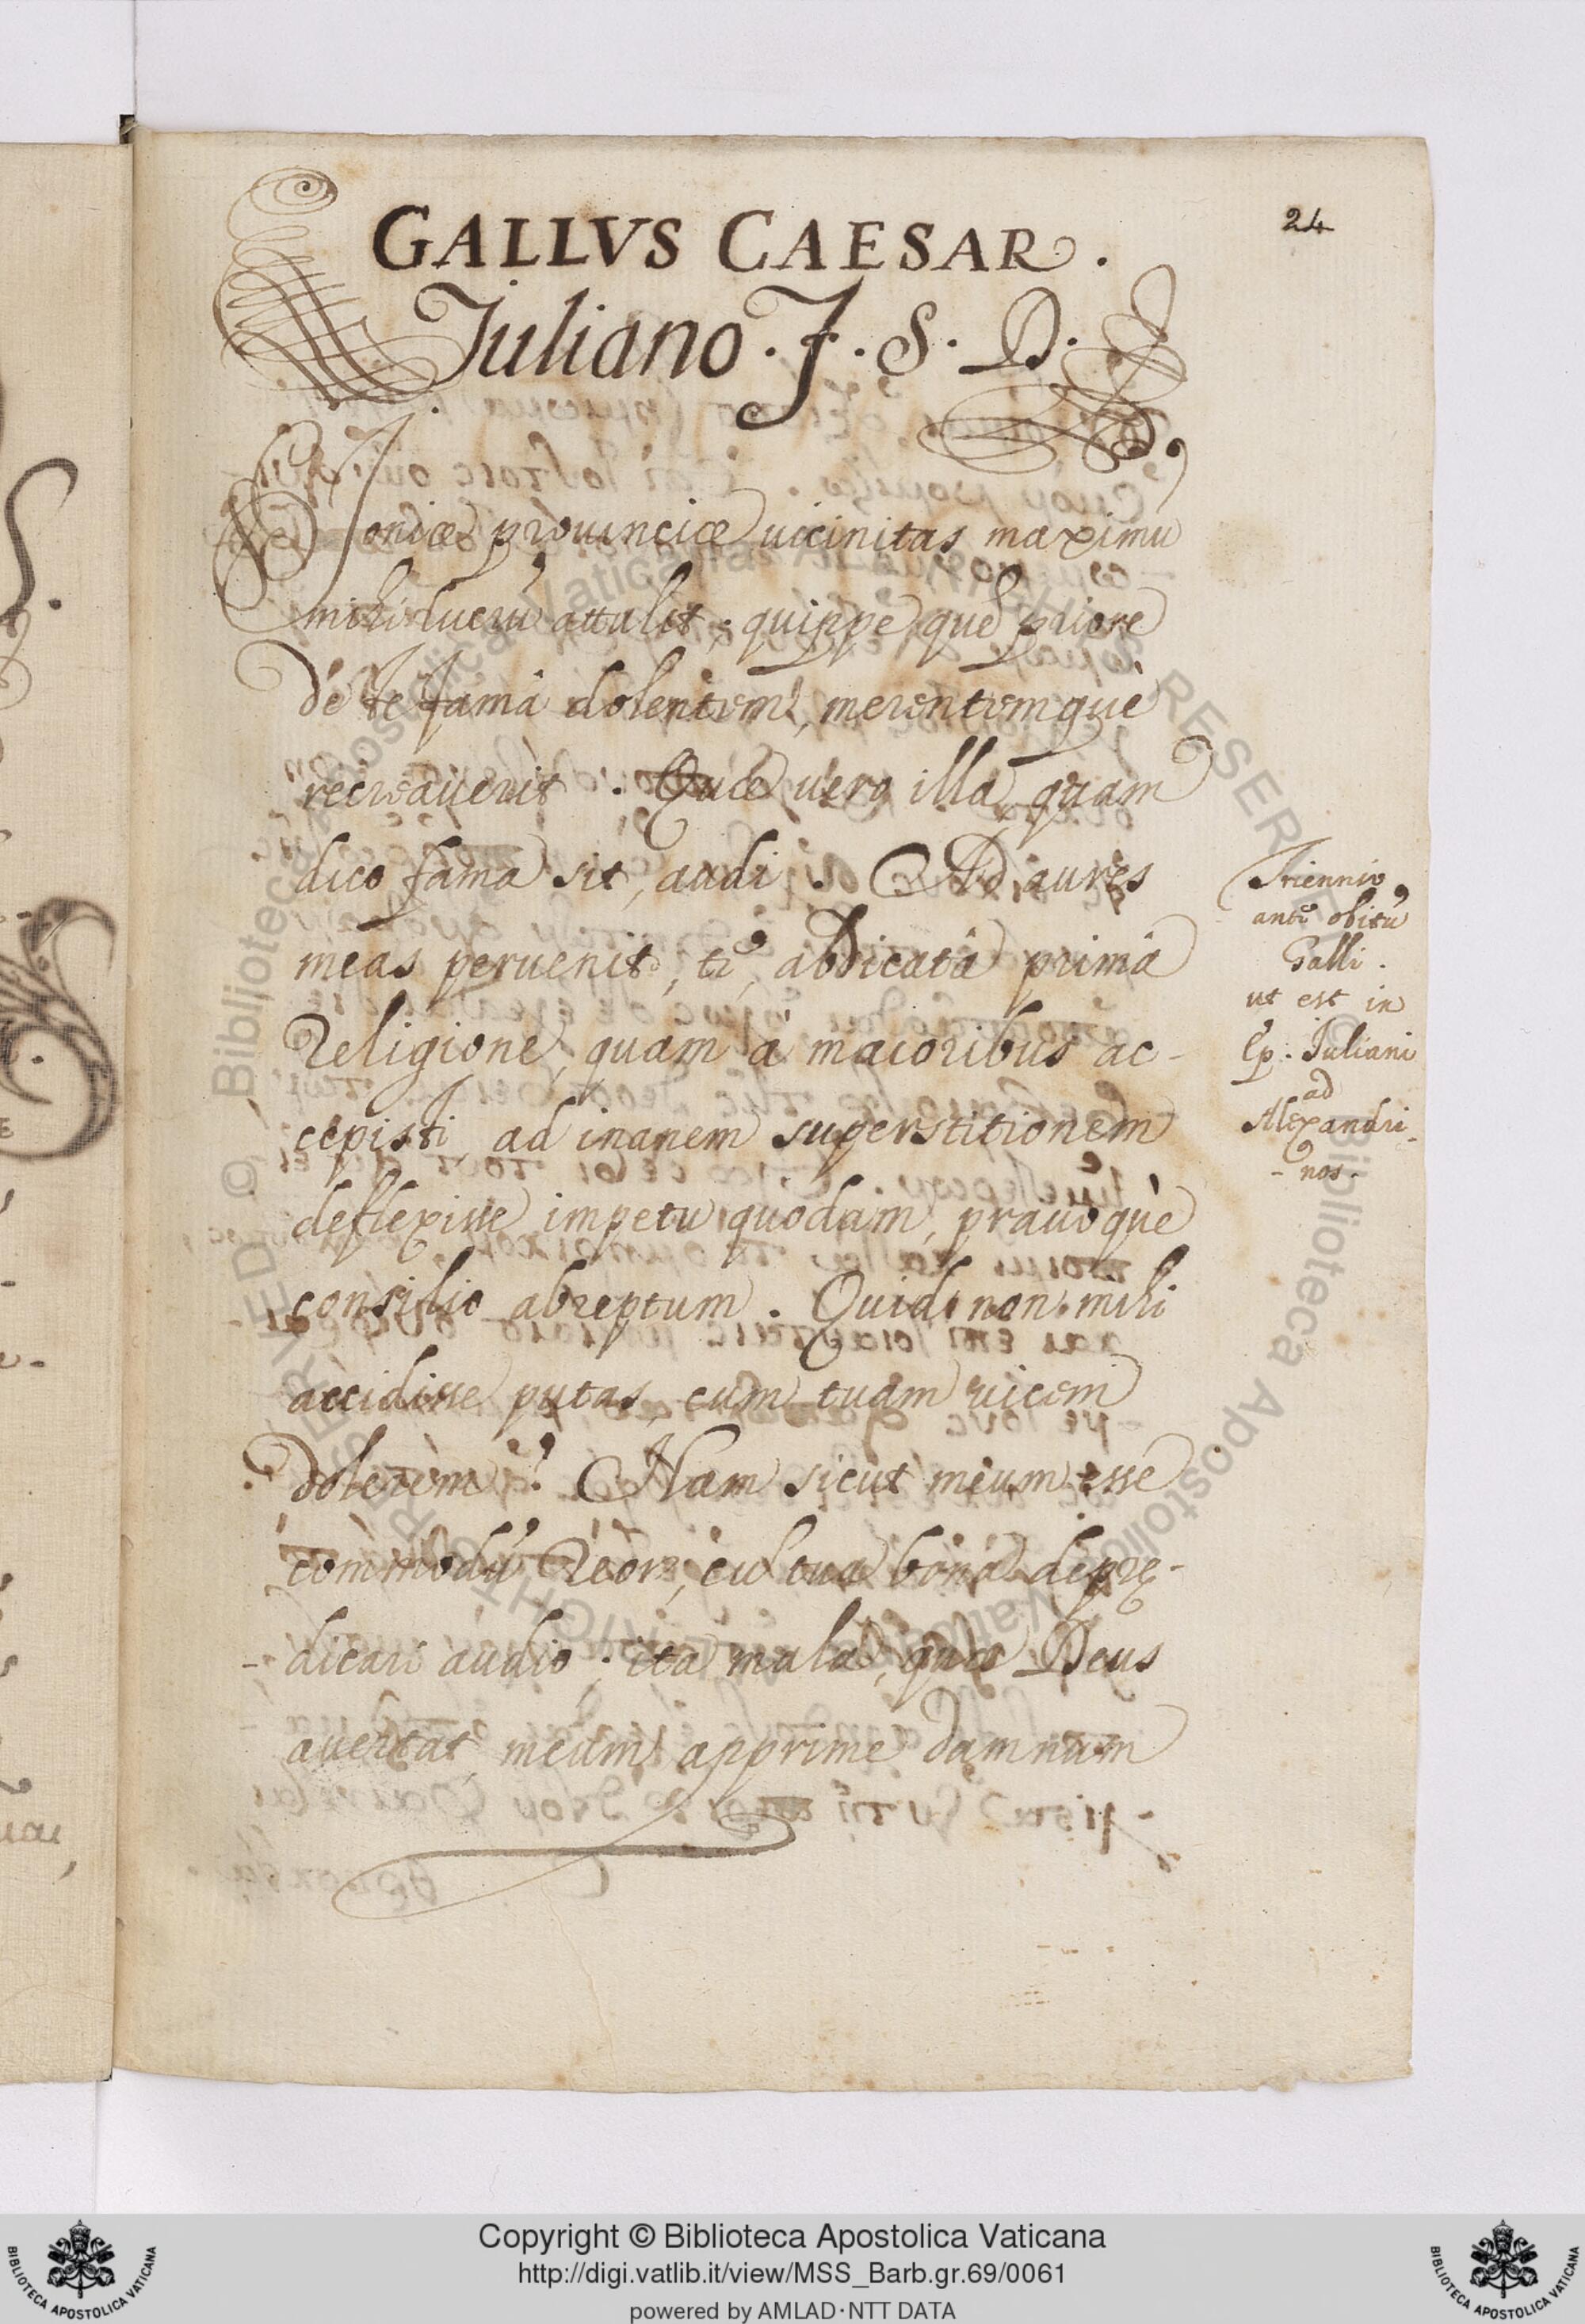 24
GALLVS CAESAR.
Iuliano. F. S. D.
Ioniæ prouinciæ uicinitas maximũ
mihi lucrũ attulit; quippe quę priore
de te famâ dolentem, merentemquè
recreauerit. Quæ uero illa, quam
dico fama sit, audi. Ad aures
meas peruenit, te, abdicatâ primâ
Religione, quam à maioribus ac-
cepisti, ad inanem superstitionem
deflexisse impetu quodam, prauoquè
consilio abreptum. Quid non mihi
accidisse putas, cum tuam uicem
dolerem? Nam sicut meum esse
commodũ Reor, cũ tua bona deprę-
-dicari audio; ita mala, quæ Deus
auertat, meum apprime damnum
Triennio
ante obitũ
Galli.
ut est in
Ep. Iuliani
ad
Alexandri-
-nos.
Copyright © Biblioteca Apostolica Vaticana
http://digi.vatlib.it/view/MSS_Barb.gr.69/0061
powered by AMLAD·NTT DATA